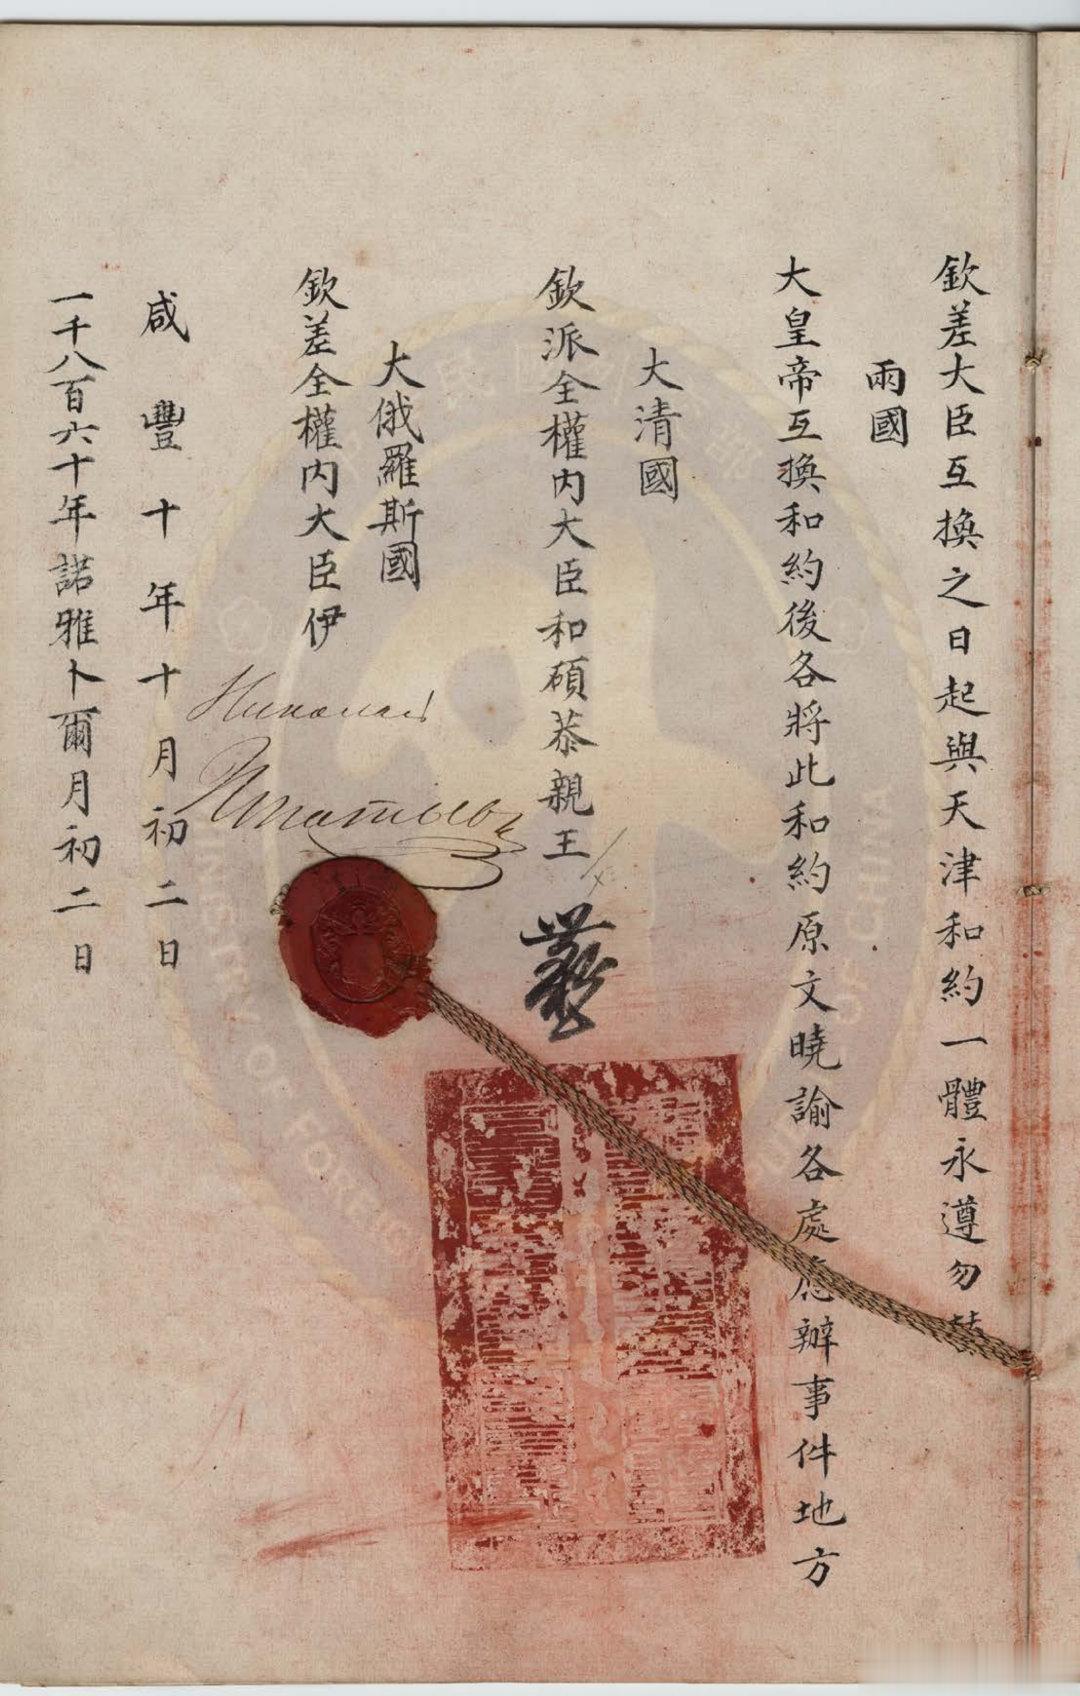 欽差大臣互換之日起與天津和約一體永遵勿替
兩國
大皇帝互換和約後各將此和約原文曉諭各處應辦事件地方
大清國
欽派全權内大臣和碩恭親王
大俄羅斯國
欽差全權内大臣伊
Николай
Игнатьевъ
咸豐十年十月初二日
一千八百六十年諾雅卜爾月初二日